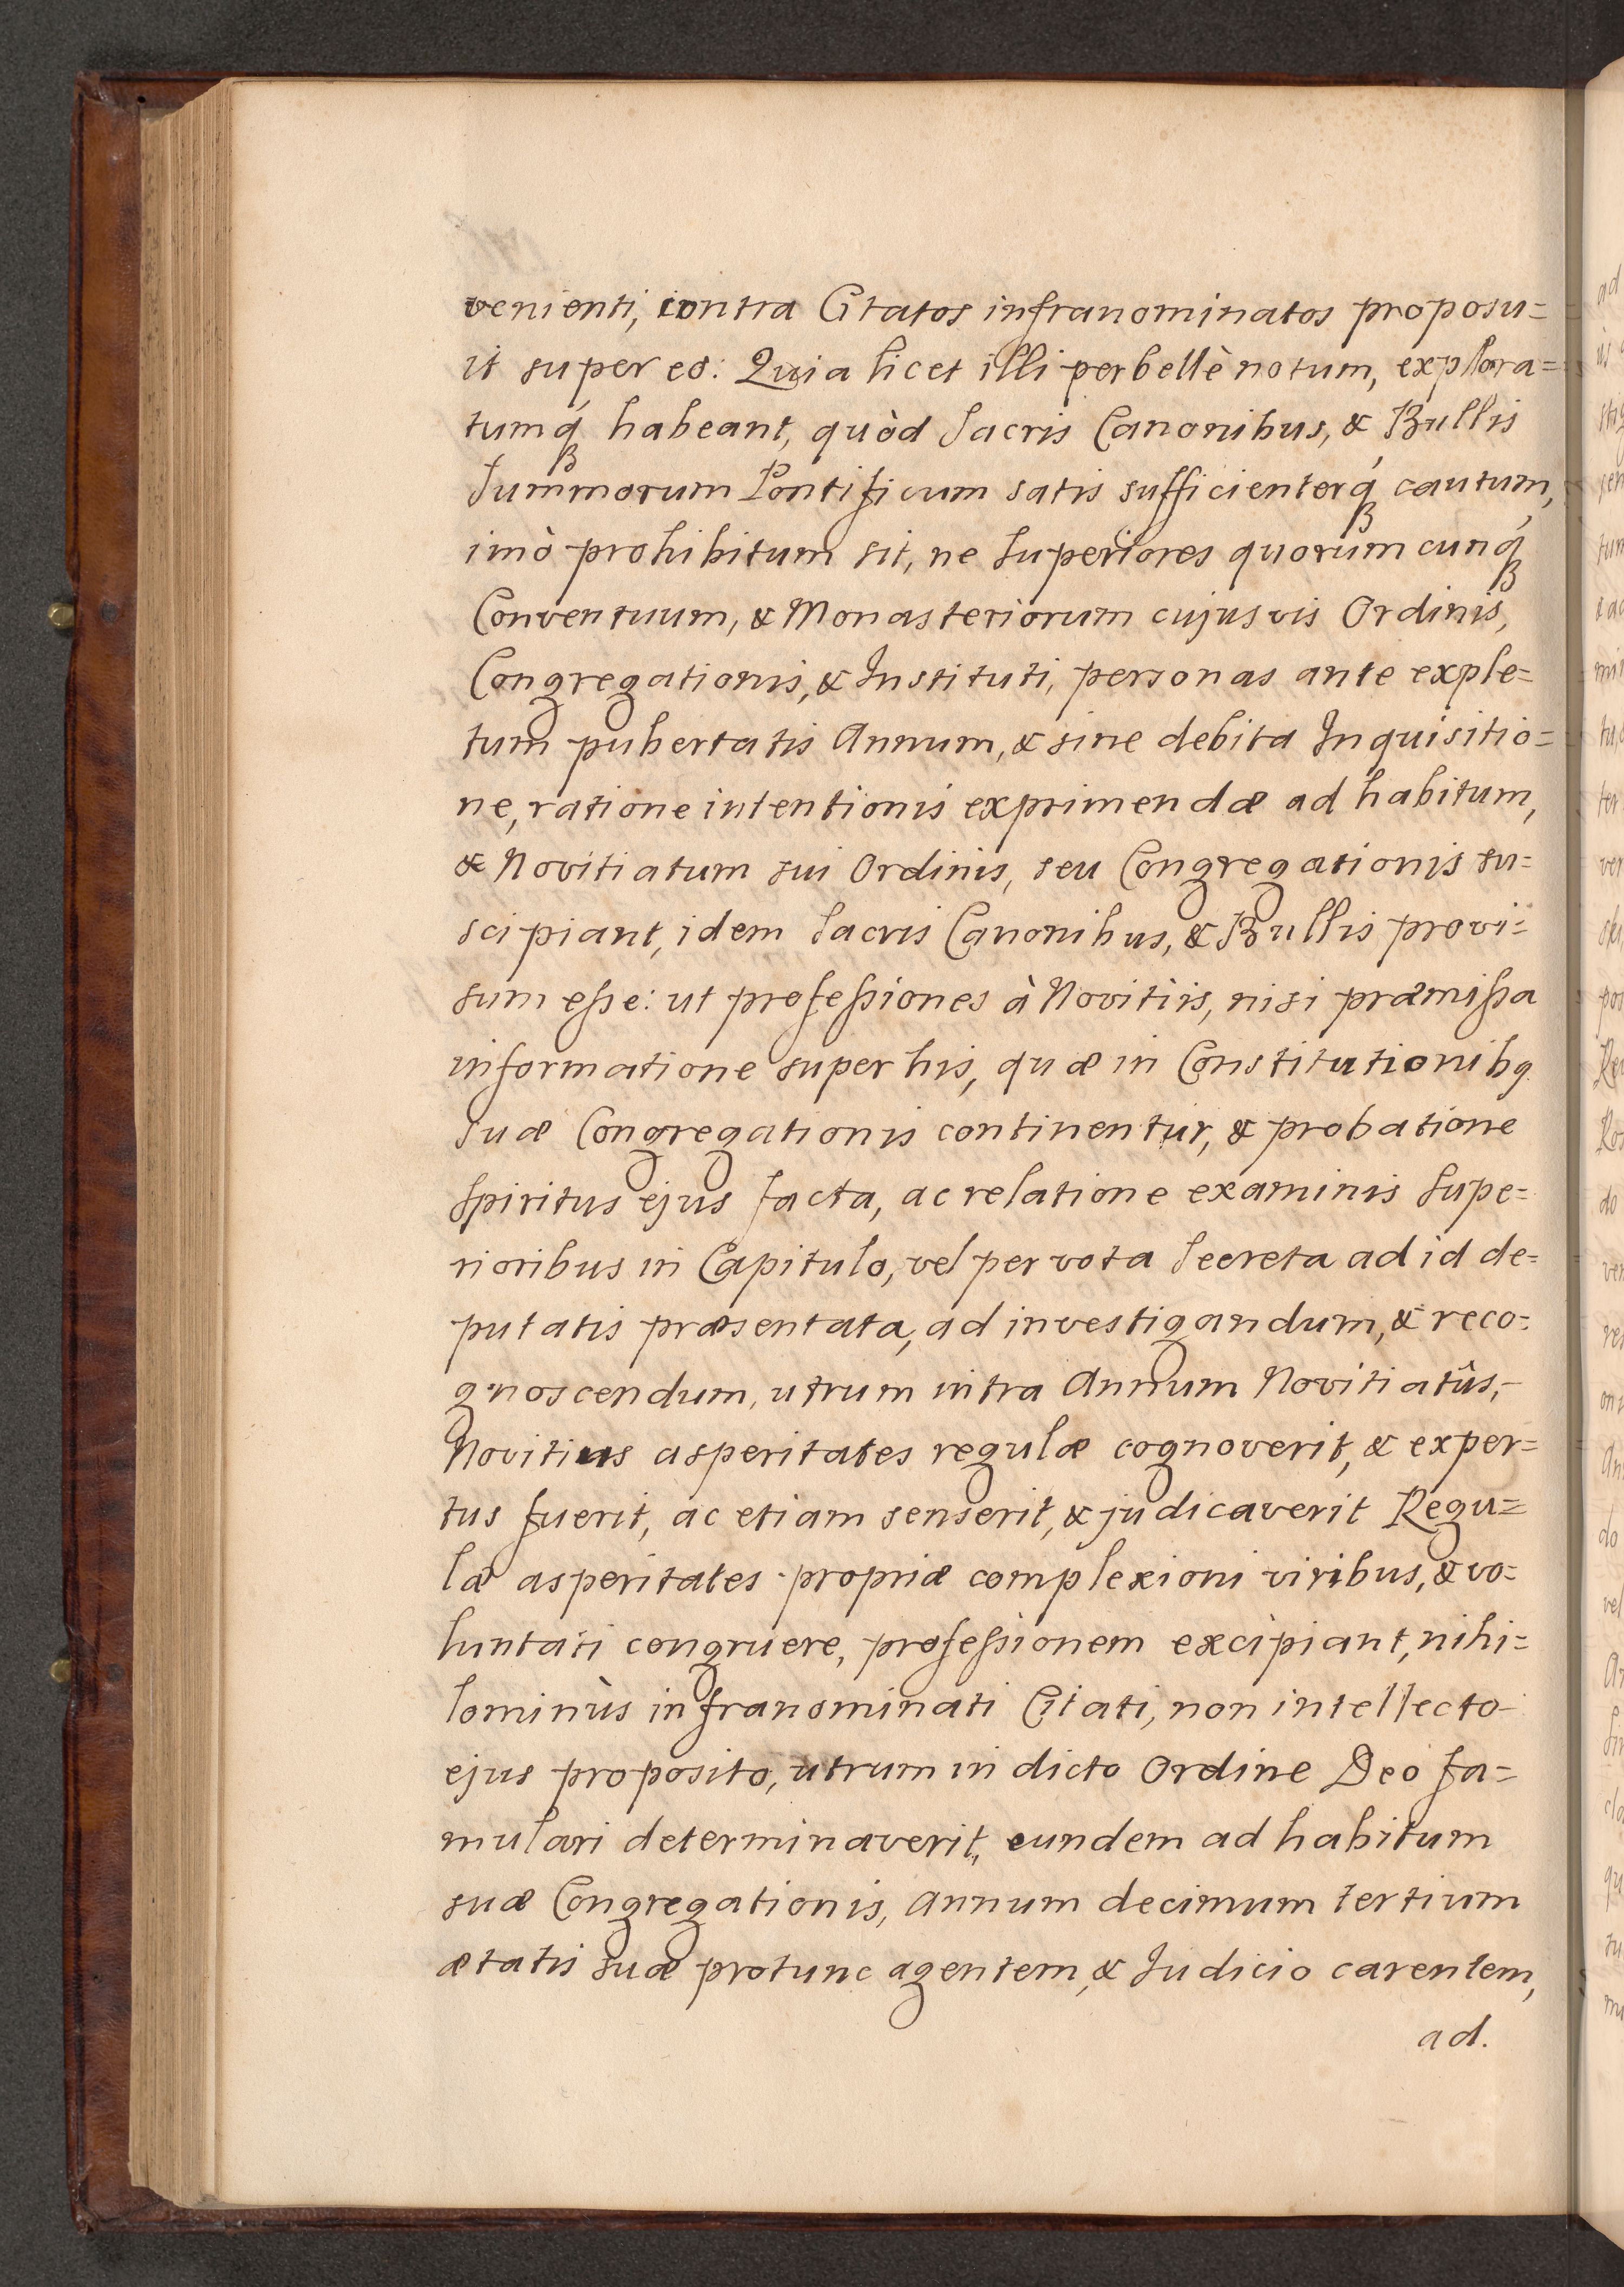 venienti, contra Citatos infranominatos proposu=
it super eo: Quia licet illi perbellè notum, explora=
tumq́ꝫ habeant, quòd Sacris Canonibus, & Bullis
Summorum Pontificum satis sufficienterq́ꝫ cautum,
imò prohibitum sit, ne Superiores quorumcunq́ꝫ
Conventuum, & Monasteriorum cujusvis Ordinis,
Congregationis, & Instituti, personas ante exple=
tum pubertatis Annum, & sine debita Inquisitio=
ne, ratione intentionis exprimendæ ad habitum,
& Novitiatum sui Ordinis, seu Congregationis su=
scipiant, idem Sacris Canonibus, & Bullis provi=
sum eße: ut profeßiones à Novitiis, nisi præmißa
informatione super his, quæ in Constitutionibq
Suæ Congregationis continentur, & probatione
Spiritus ejus facta, ac relatione examinis Supe=
rioribus in Capitulo, vel per vota Secreta ad id de=
putatis præsentata, ad investigandum, & reco=
gnoscendum, utrum intra Annum Novitiatûs,-
Novitius asperitates regulæ cognoverit, & exper=
tus fuerit, ac etiam senserit, & judicaverit Regu=
læ asperitates propriæ complexioni viribus, & vo=
luntati congruere, profeßionem excipiant, nihi=
lominùs infranominati Citati, non intellecto-
ejus proposito, utrum in dicto Ordine Deo fa=
mulari determinaverit, eundem ad habitum
suæ Congregationis, Annum decimum tertium
ætatis suæ protunc agentem, & Iudicio carentem,
ad.